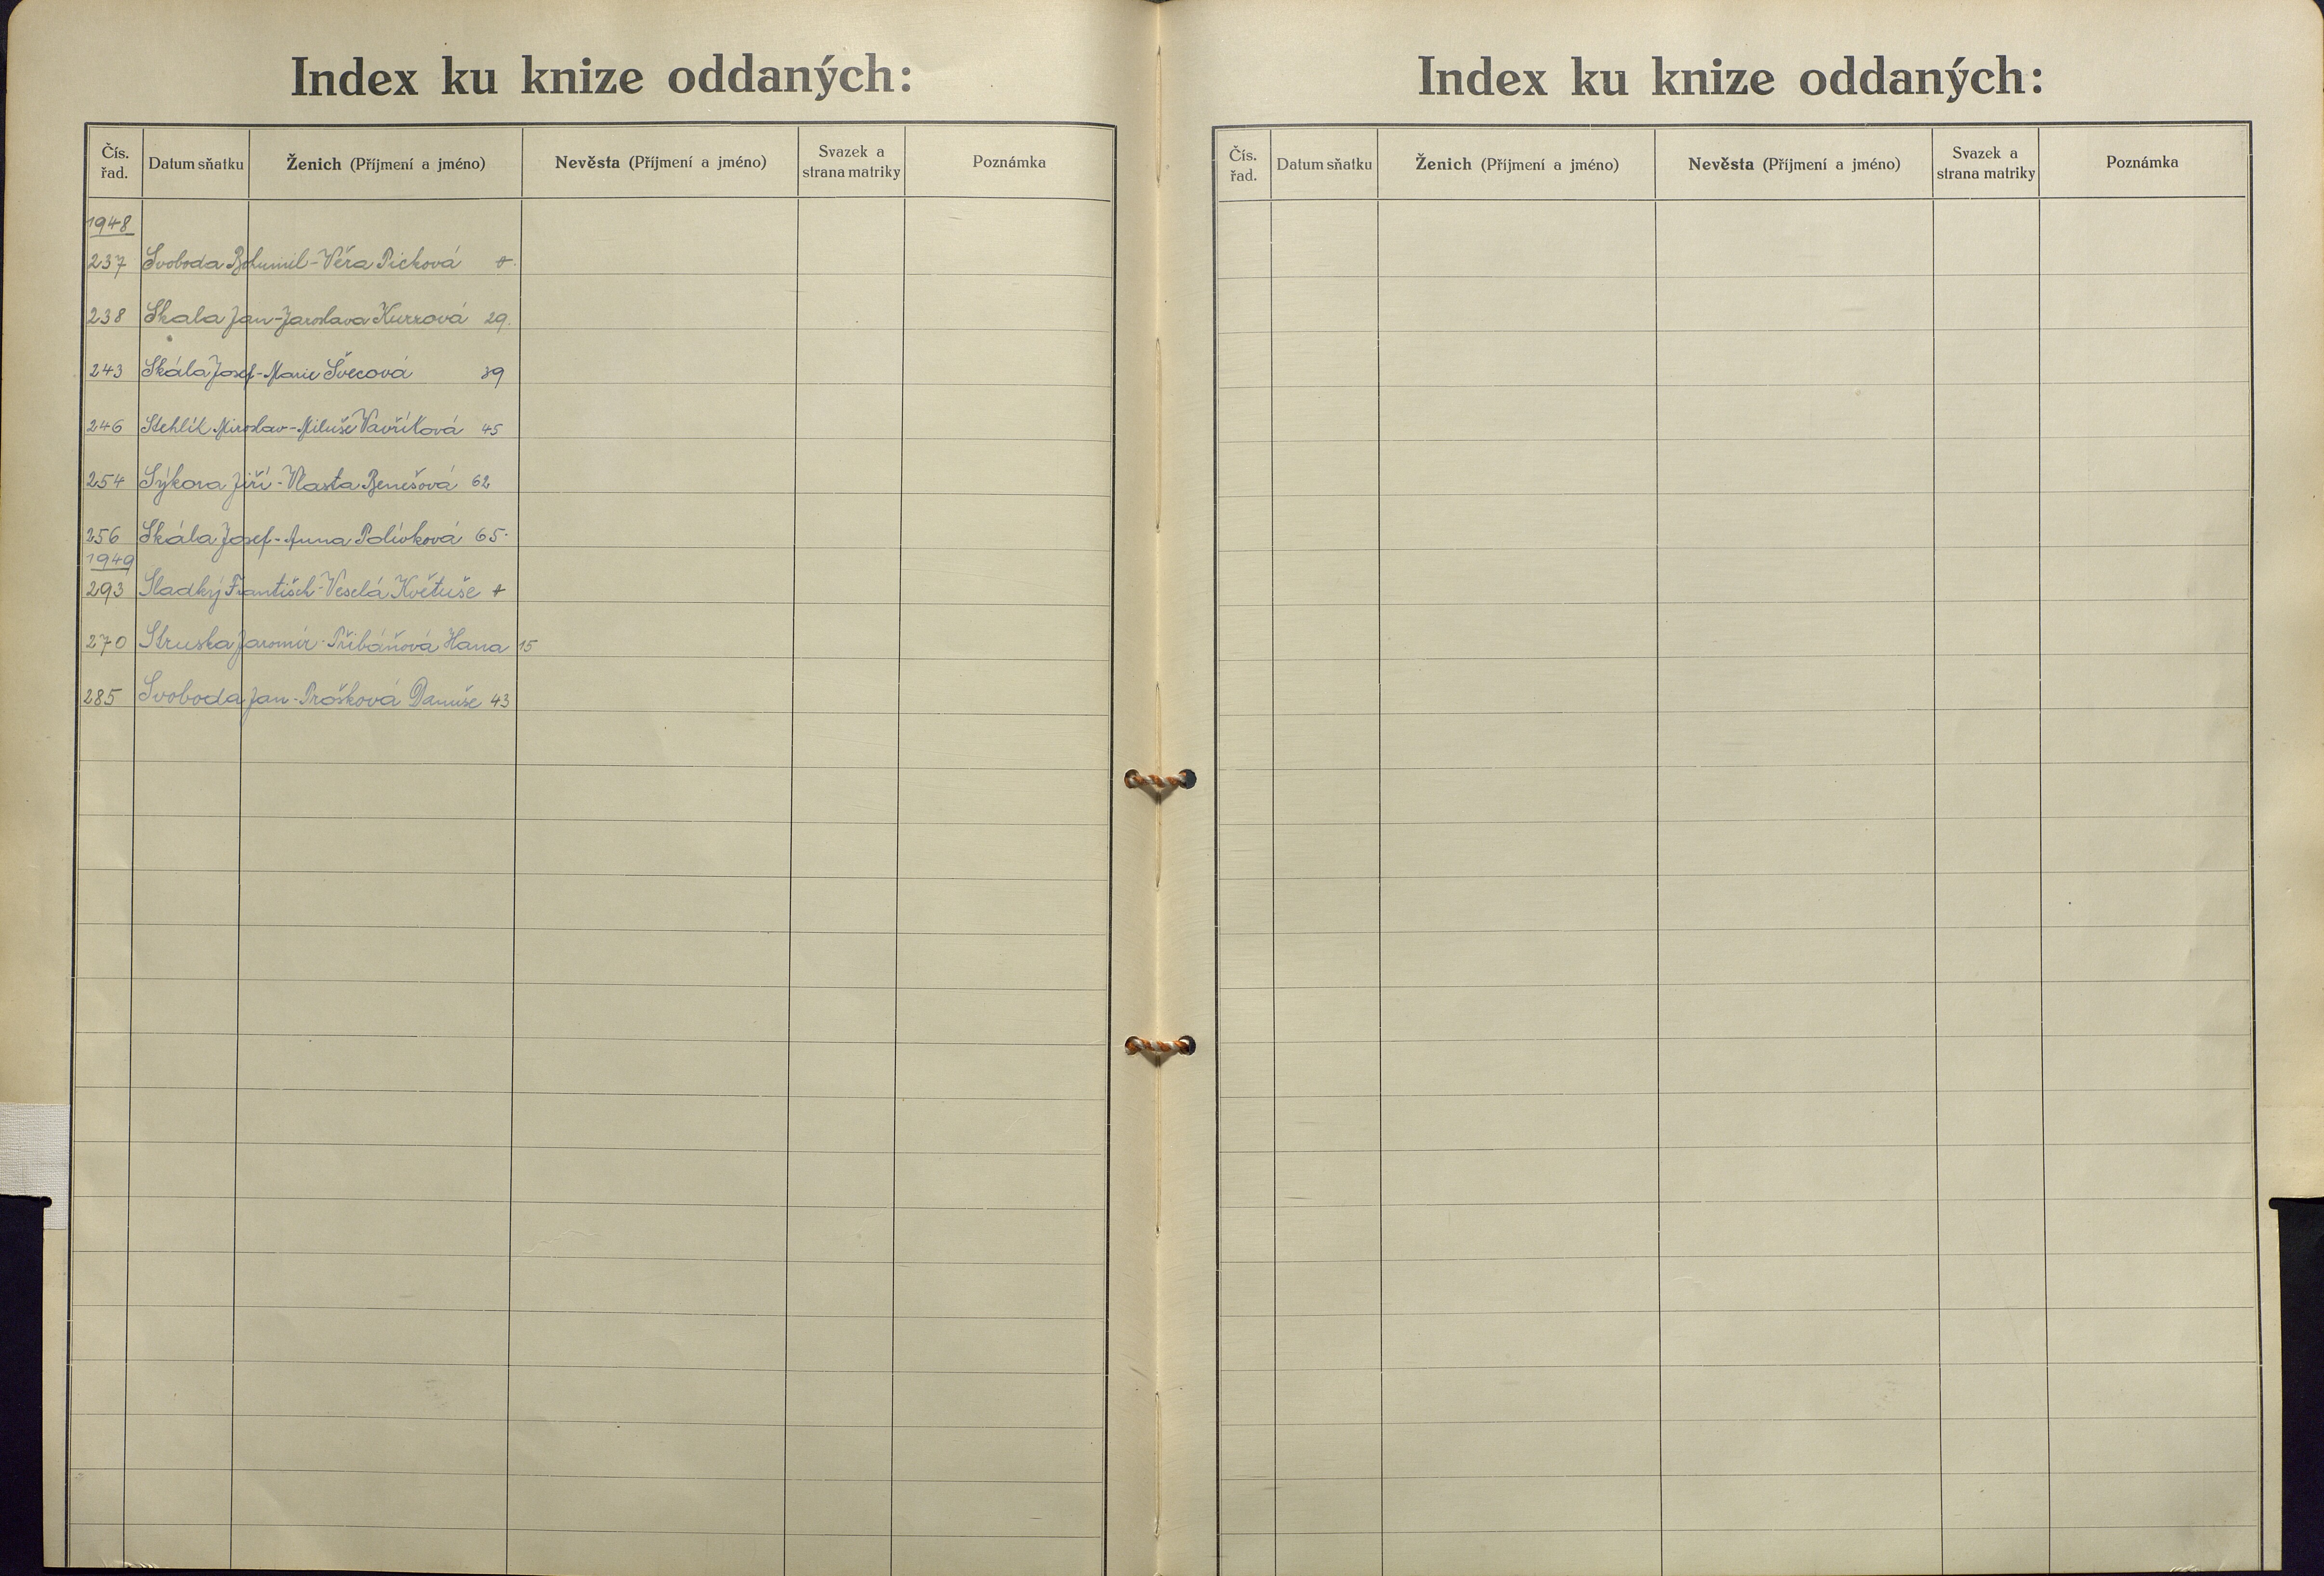 Index ku knize oddaných:
Čís. řad. Datum sňatku Ženich (Příjmení a jméno) Nevěsta (Příjmení a jméno) Svazek a strana matriky Poznámka
1948
237 Svoboda Bohumil - Věra Picková
238 Skala Jan - Jaroslava Kurzová 29.
243 Skála Josef - Marie Švecová 39
246 Stehlík Miroslav - Miluše Vavříková 45
254 Sýkora Jiří - Vlasta Benešová 62
256 Skála Josef - Anna Polívková 65.
1949
293 Sladký František - Veselá Květuše
270 Struska Jaromír - Přibáňová Hana 15
285 Svoboda Jan - Prošková Danuše 43
Index ku knize oddaných:
Čís. řad. Datum sňatku Ženich (Příjmení a jméno) Nevěsta (Příjmení a jméno) Svazek a strana matriky Poznámka